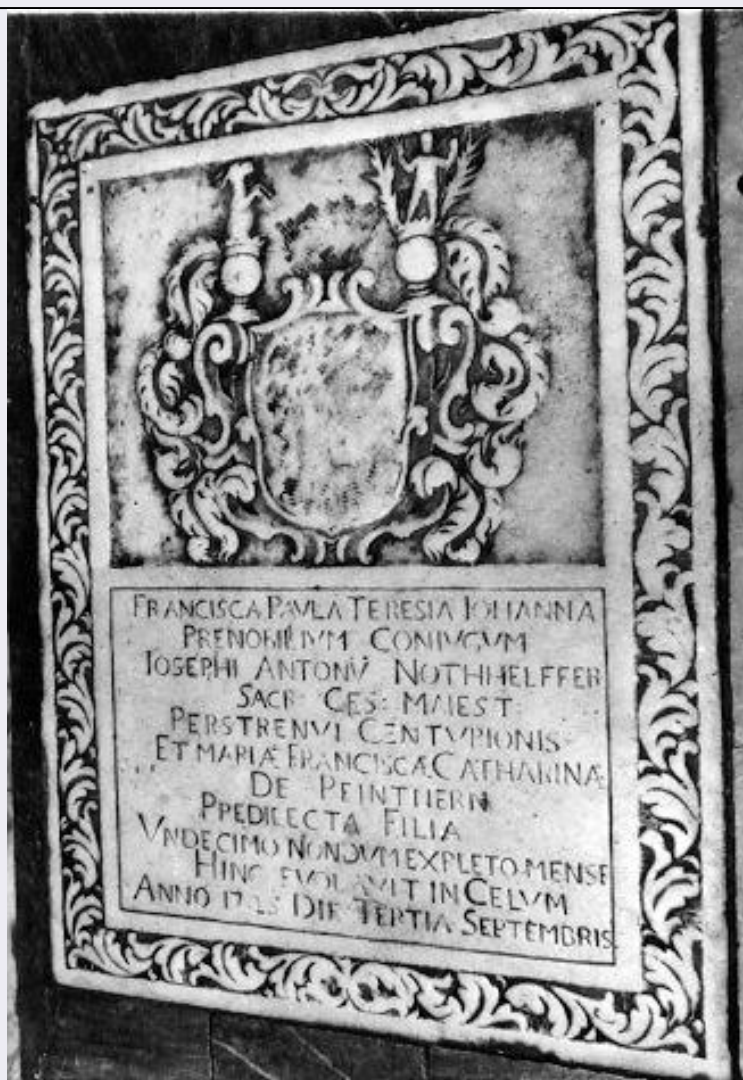 FRANCISCA PAVLA TERESIA IOHANNA
PRENOBILIVM CONIVGVM
IOSEPHI ANTONII NOTHHELFFER
SACR CES: MAIEST:
PERSTRENVI CENTVRIONIS
ET MARIÆ FRANCISCÆ CATHARINÆ
DE PEINTHERN
PREDILECTA FILIA
VNDECIMO NONDVM EXPLETO MENSE
HINC EVOLAVIT IN CELVM
ANNO DIE TERTIA SEPTEMBRIS